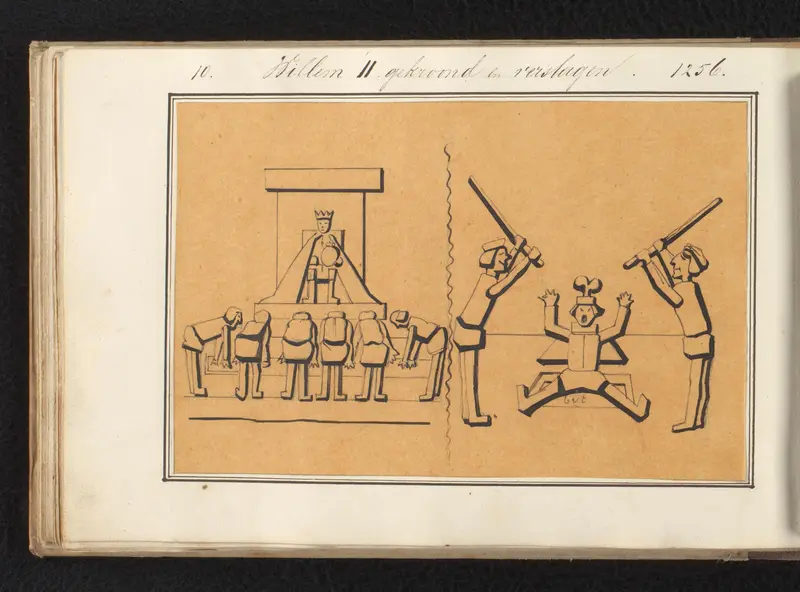 10. Willem II gekroond en verslagen. 1256.